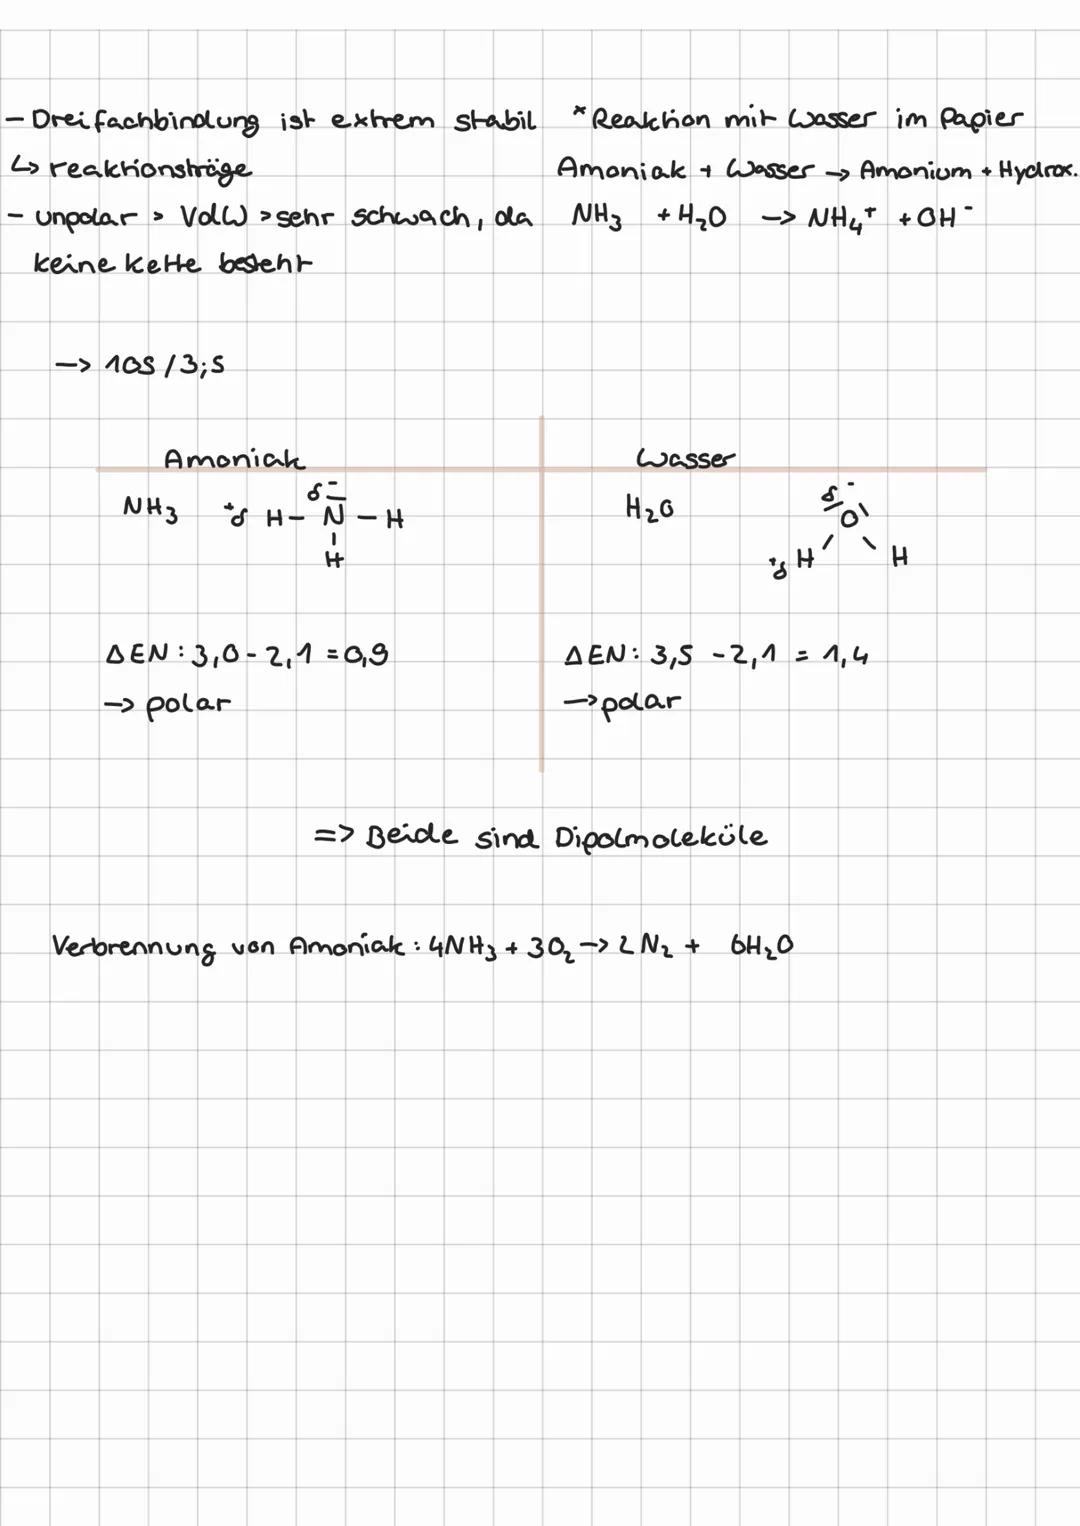 - Dreifachbindung ist extrem stabil
↳ reaktionsträge
- unpolar > VdW > sehr schwach, da
keine Kette besteht
* Reaktion mit Wasser im Papier
Amoniak + Wasser → Amonium + Hydrox.
NH₃ + H₂O → NH₄⁺ + OH⁻
→ 105/3;5
Amoniak
NH₃ δ⁺ H - N - H δ⁻
H
ΔEN: 3,0 - 2,1 = 0,9
→ polar
Wasser
H₂O δ⁻ O
δ⁺ H H
ΔEN: 3,5 - 2,1 = 1,4
→ polar
=> Beide sind Dipolmoleküle
Verbrennung von Amoniak: 4NH₃ + 3O₂ → 2N₂ + 6H₂O